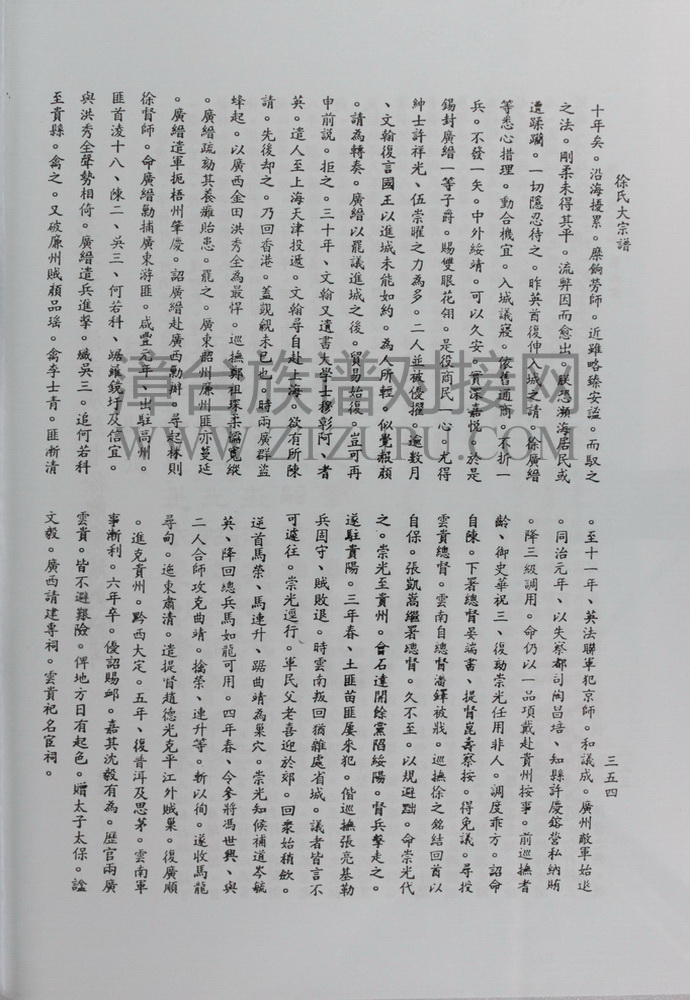 徐氏大宗譜
三五四
十年矣。沿海擾累。糜餉勞師。近雖略臻安謐。而馭之
之法。剛柔未得其平。流弊因而愈出。朕恐瀕海居民或
遭蹂躪。一切隱忍待之。昨英酋復伸入城之請。徐廣縉
等悉心措理。動合機宜。入城議寢。依舊通商。不折一
兵。不發一矢。中外綏靖。可以久安。實深嘉悅。於是
錫封廣縉一等子爵。賜雙眼花翎。是役商民一心。尤得
紳士許祥光、伍崇曜之力為多。二人並被優擢。逾數月
、文翰復言國王以進城未能如約。為人所輕。似覺赧顏
。請為轉奏。廣縉以罷議進城之後。貿易始復。豈可再
申前說。拒之。三十年、文翰又遺書大學士穆彰阿、耆
英。遣人至上海天津投遞。文翰尋自赴上海。欲有所陳
請。先後却之。乃回香港。蓋覬覦未已也。時兩廣群盜
蜂起。以廣西金田洪秀全為最悍。巡撫鄭祖琛柔懦寬縱
。廣縉疏劾其養癰貽患。罷之。廣東韶州廉州匪亦蔓延
。廣縉遣軍扼梧州肇慶。詔廣縉赴廣西勦辦。尋起林則
徐督師。命廣縉勦捕廣東游匪。咸豐元年、出駐高州。
匪首凌十八、陳二、吳三、何若科、踞羅鏡圩及信宜。
與洪秀全聲勢相倚。廣縉遣兵進擊。殲吳三。追何若科
至貴縣。禽之。又破廉州賊顏品瑤。禽李士青。匪漸清
。至十一年、英法聯軍犯京師。和議成。廣州敵軍始退
。同治元年、以失察都司陶昌培、知縣許慶鎔營私納賄
。降三級調用。命仍以一品頂戴赴貴州按事。前巡撫耆
齡、御史華祝三、復劾崇光任用非人。調度乖方。詔命
自陳。下署總督晏端書、提督崑壽察按。得免議。尋授
雲貴總督。雲南自總督潘鐸被戕。巡撫徐之銘結回首以
自保。張凱嵩繼署總督。久不至。以規避黜。命崇光代
之。崇光至貴州。會石達開餘黨陷綏陽。督兵擊走之。
遂駐貴陽。三年春、土匪苗匪屢來犯。偕巡撫張亮基勒
兵固守、賊敗退。時雲南叛回猶雜處省城。議者皆言不
可遽往。崇光遄行。軍民父老喜迎於郊。回衆始稍歛。
逆首馬榮、馬連升、踞曲靖為巢穴。崇光知候補道岑毓
英、降回總兵馬如龍可用。四年春、令參將馮世興、與
二人合師攻克曲靖。擒榮、連升等。斬以徇。遂收馬龍
尋甸。迤東肅清。遣提督趙德光克平江外賊巢。復廣順
。進克貴州。黔西大定。五年、復普洱及思茅。雲南軍
事漸利。六年卒。優詔賜卹。嘉其沈毅有為。歷官兩廣
雲貴。皆不避艱險。俾地方日有起色。贈太子太保。諡
文毅。廣西請建專祠。雲貴祀名宦祠。
章台族谱对接网
WWW.ZIZUPU.COM